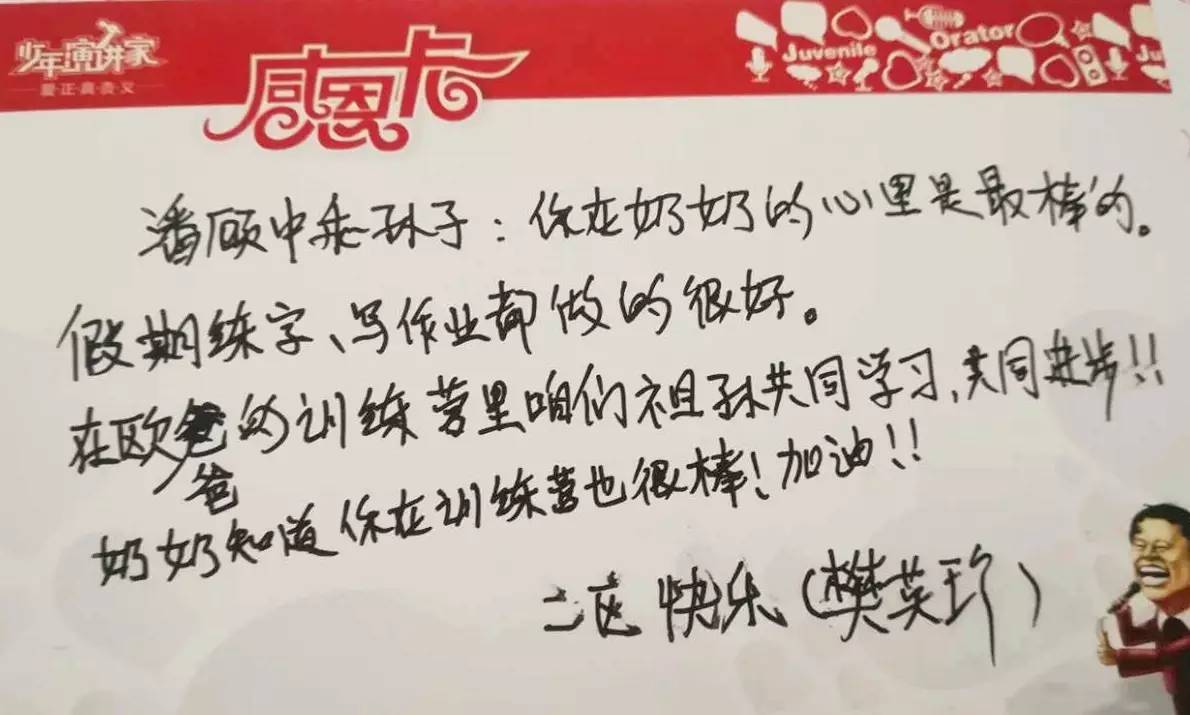 少年演讲家
爱·正·真·责·义
感恩卡
Juvenile Orator Ju
潘颀中乖孙子：你在奶奶的心里是最棒的。
假期练字、写作业都做的很好。
在欧爸的训练营里咱们祖孙共同学习，共同进步!!
爸
奶奶知道你在训练营也很棒！加油!!
二区 快乐（樊英珍）